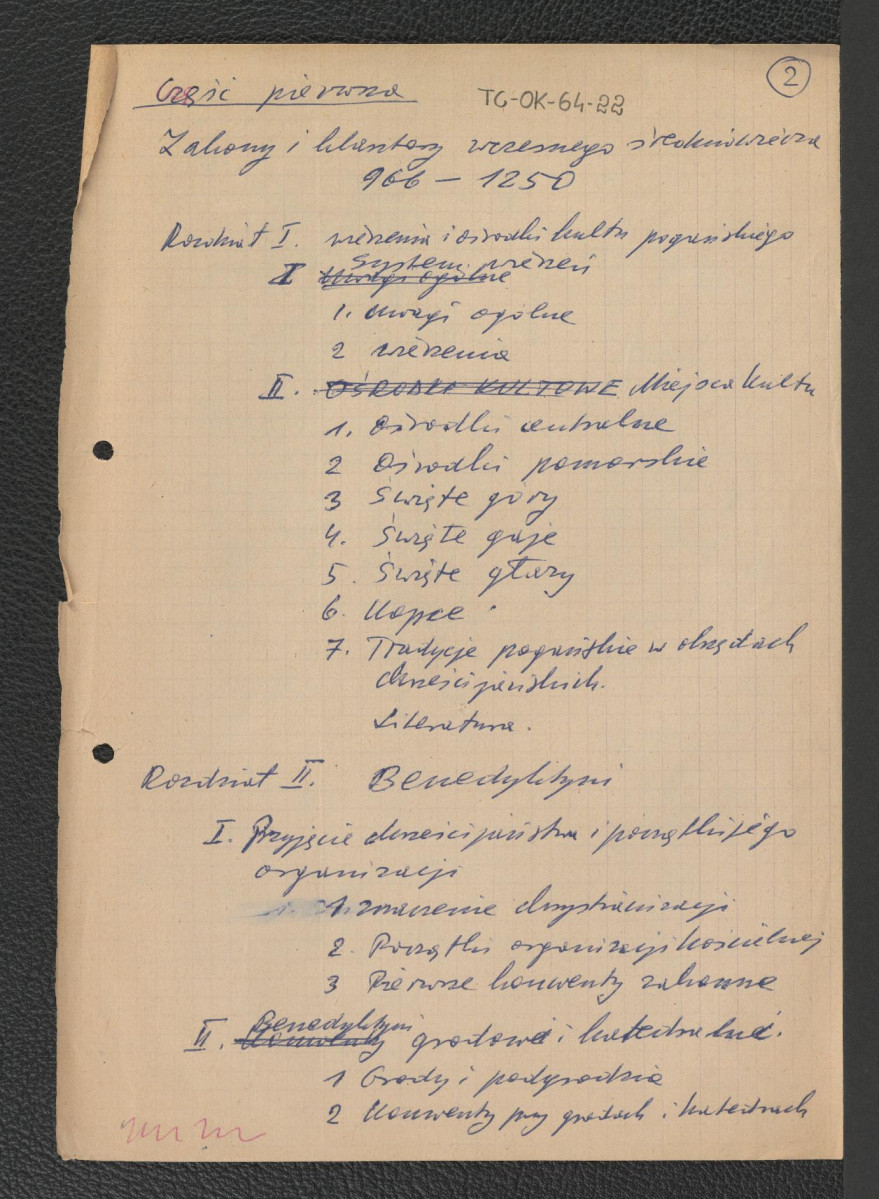 2
Część pierwsza
TG-OK-64-22
Zakony i klasztory wczesnego średniowiecza
966 - 1250
Rozdział I. wierzenia i ośrodki kultu pogańskiego
System wierzeń
I Uwagi ogólne
1. Uwagi ogólne
2 wierzenia
II. OŚRODKI KULTOWE Miejsca kultu
1. Ośrodki centralne
2 Ośrodki pomorskie
3 Święte góry
4. Święte gaje
5. Święte głazy
6. Kopce
7. Tradycje pogańskie w obrzędach
chrześcijańskich.
Literatura.
Rozdział II. Benedyktyni
I. Przyjęcie chrześcijaństwa i początki jego
organizacji
1. znaczenie chrystianizacji
2. Początki organizacji kościelnej
3 Pierwsze konwenty zakonne
Benedyktyni
II. grodowi i katedralni.
1 Grody i podgrodzia
2 Konwenty przy grodach i katedrach